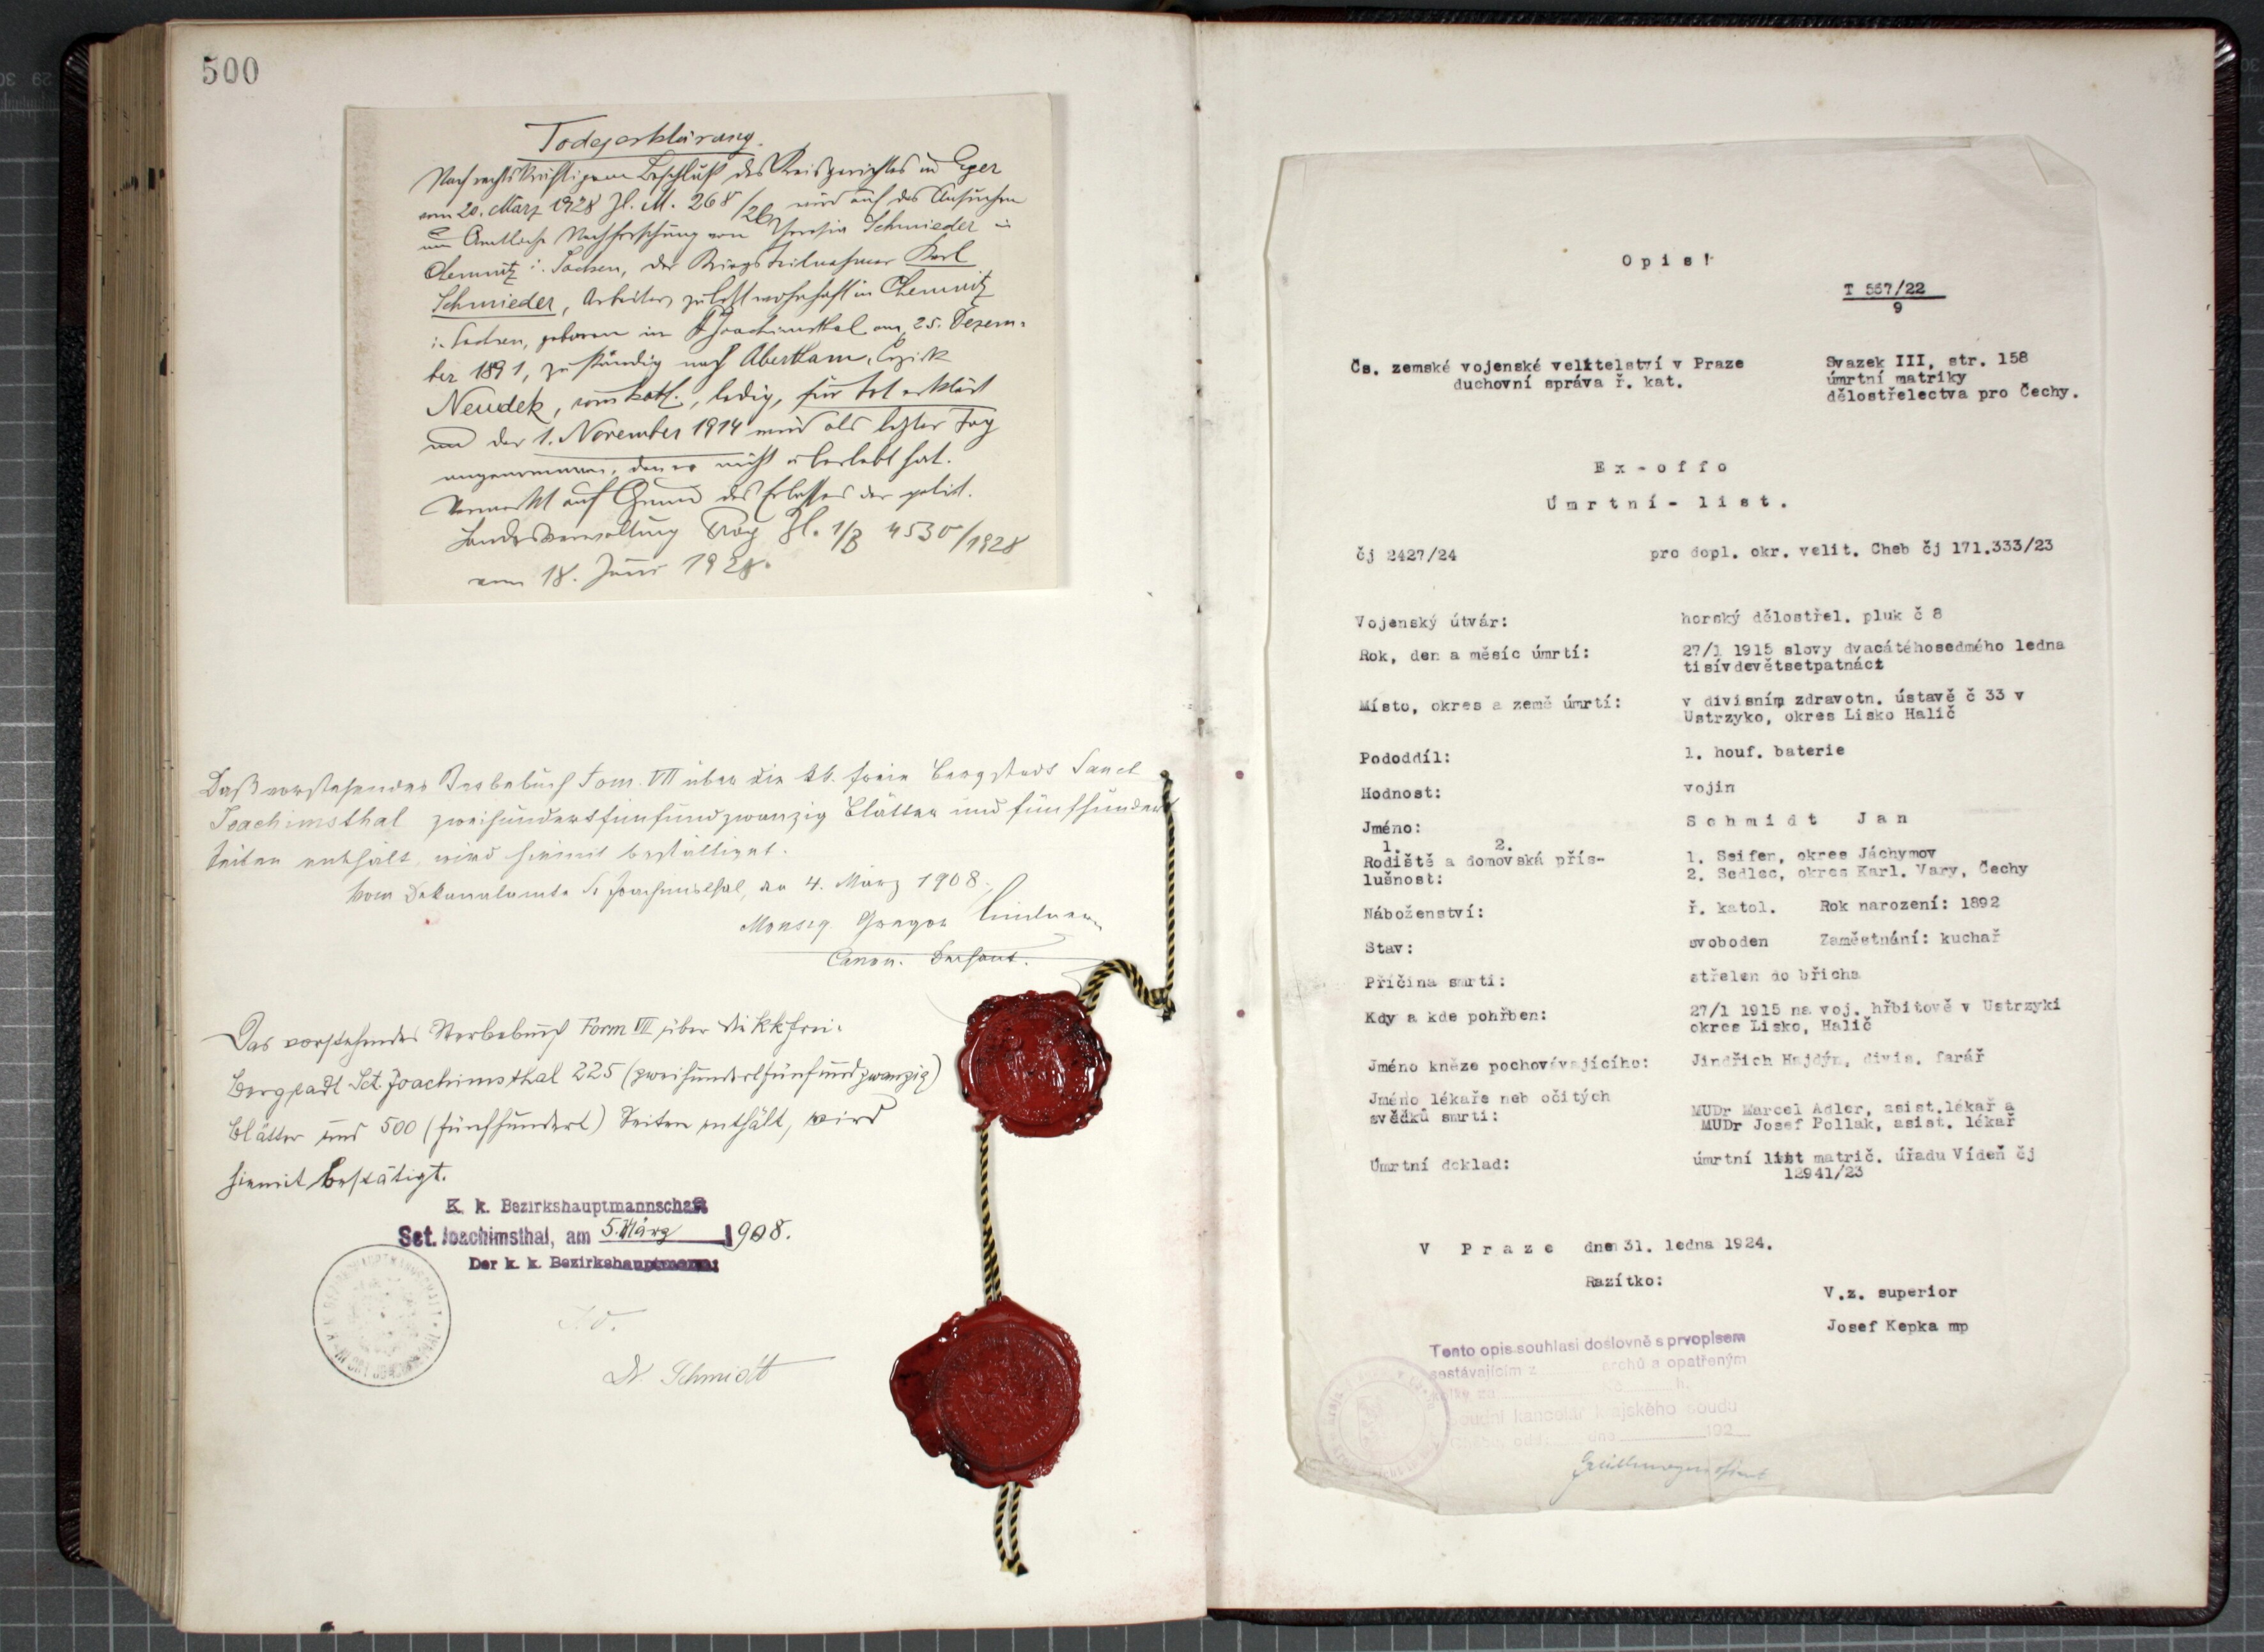 500
Todeserklärung.
Nach rechtskräftigem Beschluß des Kreisgerichtes in Eger
vom 20. März 1928 Zl. M. 268/26 wird auf das Ansuchen
um Amtliche Nachforschung von Theresia Schmieder in
Chemnitz i. Sachsen, der Kriegsteilnehmer Karl
Schmieder, Arbeiter, zuletzt wohnhaft in Chemnitz
i. Sachsen, geboren in St Joachimsthal am 25. Dezem-
ber 1891, zuständig nach Abertham, Bezirk
Neudek, röm. kath., ledig, für tot erklärt
und der 1. November 1914 wird als letzter Tag
angenommen, den er nicht überlebt hat.
Vermerkt auf Grund des Erlasses der polit.
Landesverwaltung Prag Zl. 1/B 4530/1928
vom 18. Juni 1928.
Daß vorstehendes Sterbebuch Tom. VII über die kk. freie Bergstadt Sanct
Joachimsthal zweihundertfünfundzwanzig Blätter und fünfhundert
Seiten enthält, wird hiemit bestättiget.
Vom Dekanalamte St Joachimsthal, den 4. März 1908.
Monsig. Gregor Lindner
Canon. Dechant.
Das vorstehendes Sterbebuch Tom VII über die kk frei-
Bergstadt Sct. Joachimsthal 225 (zweihundertfünfundzwanzig)
Blätter und 500 (fünfhundert) Seiten enthält, wird
hiemit bestätigt.
K. k. Bezirkshauptmannschaft
Sct. Joachimsthal, am 5. März 1908.
Der k. k. Bezirkshauptmann:
Dr Schmidt
Opis!
T 557/22
9
Čs. zemské vojenské velitelství v Praze
duchovní správa ř. kat.
Svazek III, str. 158
úmrtní matriky
dělostřelectva pro Čechy.
Ex-offo
Úmrtní- list.
čj 2427/24 pro dopl. okr. velit. Cheb čj 171.333/23
Vojenský útvár: horský dělostřel. pluk č 8
Rok, den a měsíc úmrtí: 27/1 1915 slovy dvacátéhosedmého ledna
tisívdevětsetpatnáct
Místo, okres a země úmrtí: v divisním zdravotn. ústavě č 33 v
Ustrzyko, okres Lisko Halič
Pododdíl: 1. houf. baterie
Hodnost: vojín
Jméno: Schmidt Jan
1. 2.
Rodiště a domovská přís- 1. Seifen, okres Jáchymov
lušnost: 2. Sedlec, okres Karl. Vary, Čechy
Náboženství: ř. katol. Rok narození: 1892
Stav: svoboden Zaměstnání: kuchař
Příčina smrti: střelen do břicha
Kdy a kde pohřben: 27/1 1915 na voj. hřbitově v Ustrzyki
okres Lisko, Halič
Jméno kněze pochovávajícího: Jindřich Hajdým, divis. farář
Jméno lékaře neb očitých
svědků smrti: MUDr Marcel Adler, asist.lékař a
MUDr Josef Pollak, asist. lékař
Úmrtní doklad: úmrtní list matrič. úřadu Vídeň čj
12941/23
V Praze dne 31. ledna 1924.
Razítko:
V.z. superior
Josef Kepka mp
Tento opis souhlasí doslovně s prvopisem
sestávajícím z archů a opatřeným
h.
Soudní kancelář krajského soudu
dne 192